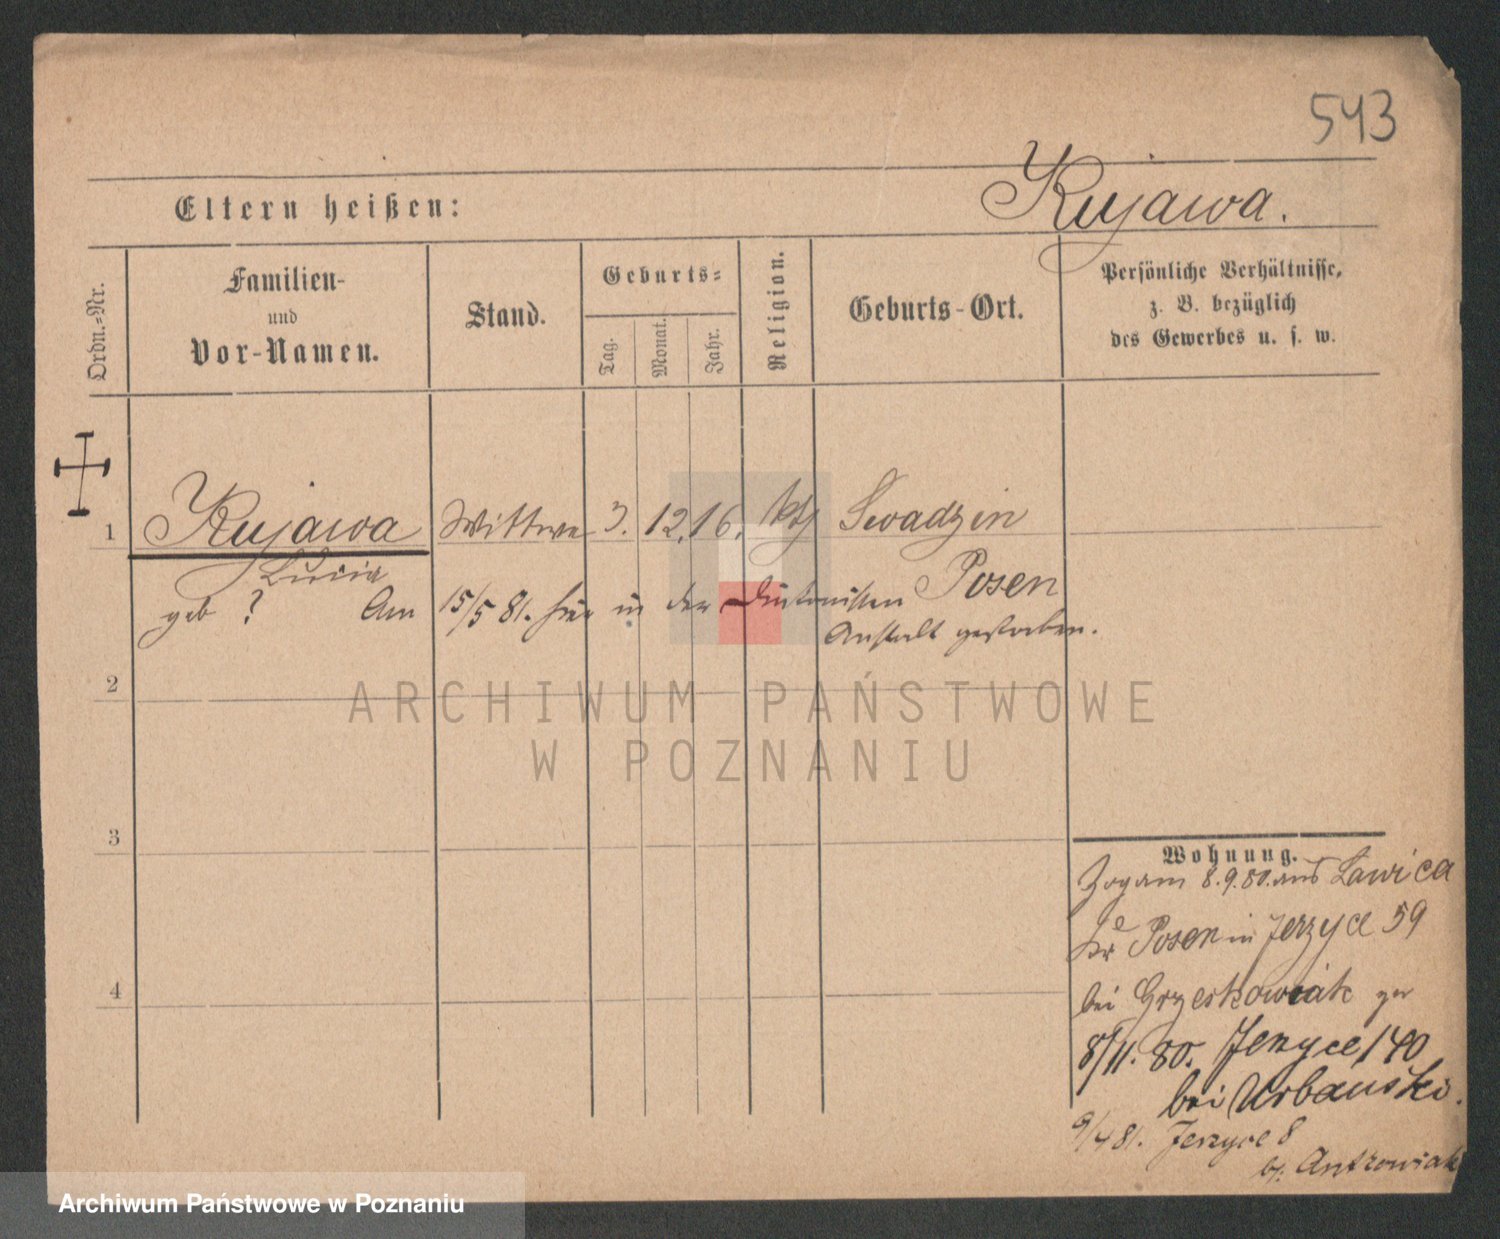 543
Eltern heißen:
Kujawa.
Ordn.-Nr.
Familien-
und
Vor-Namen.
Stand.
Geburts-
Tag.
Monat.
Jahr.
Religion.
Geburts-Ort.
Persönliche Verhältnisse,
z. B. bezüglich
des Gewerbes u. s. w.
1 Kujawa Wittwe 3. 12. 16. kth Swadzin
Lucia Posen
geb ? Am 15/5 81. hier in der Diakonissen
Anstalt gestorben.
2
3
4
Wohnung.
Zog am 8.9.80. aus Lawica
Kr Posen in Jerzyce 59
bei Grzeskowiak
8/11. 80. Jerzyce 140
bei Urbanski.
9/4 81. Jerzyce 8
b. Antkowiak
ARCHIWUM PAŃSTWOWE
W POZNANIU
Archiwum Państwowe w Poznaniu